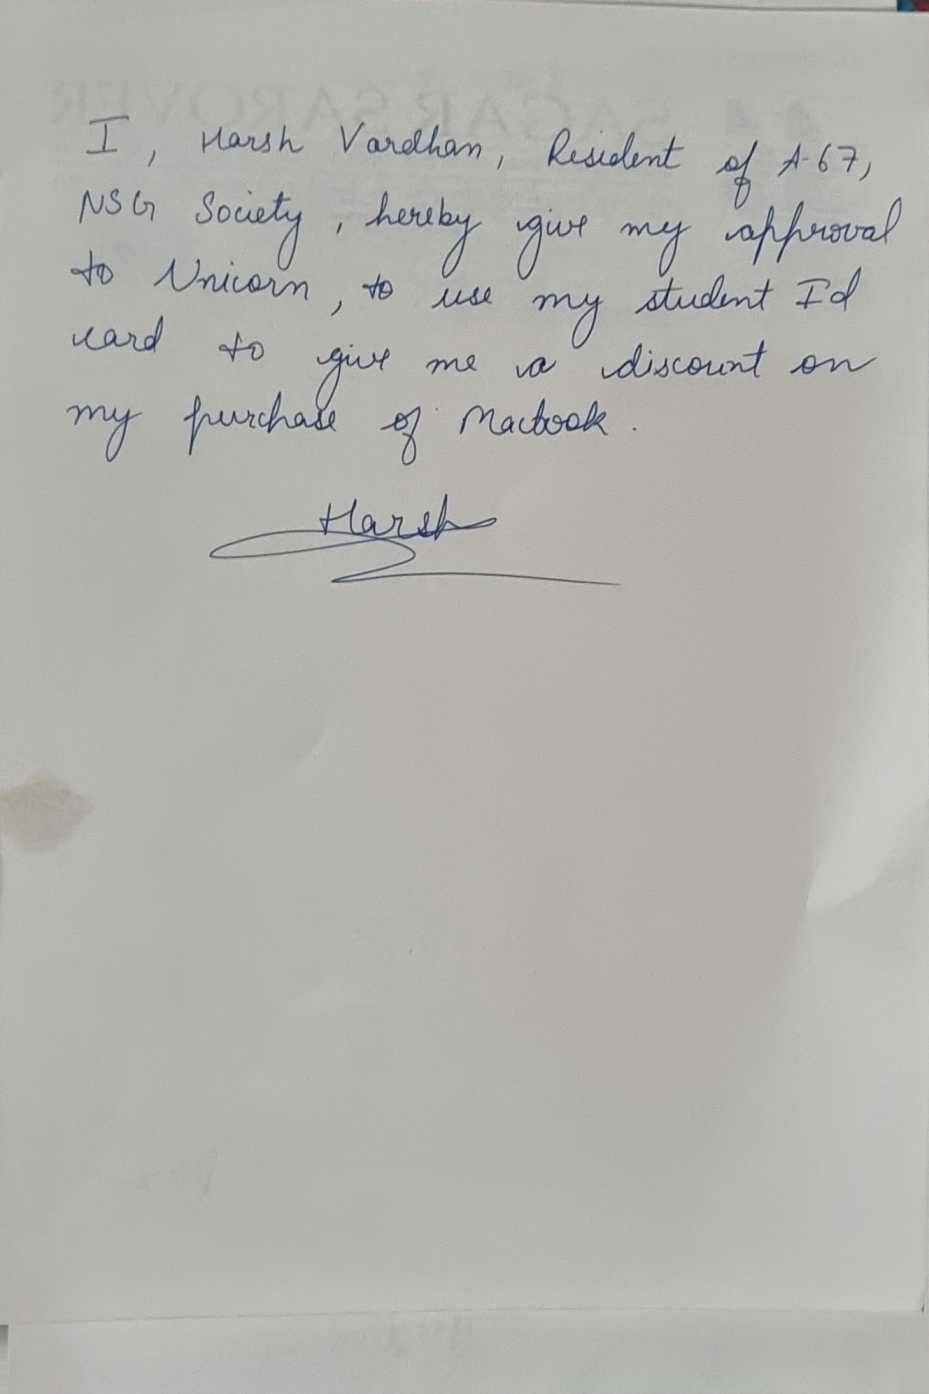 I, Harsh Vardhan, Resident of A-67,
NSG Society, hereby give my approval
to Unicorn, to use my student Id
card to give me a discount on
my purchase of Macbook.
Harsh